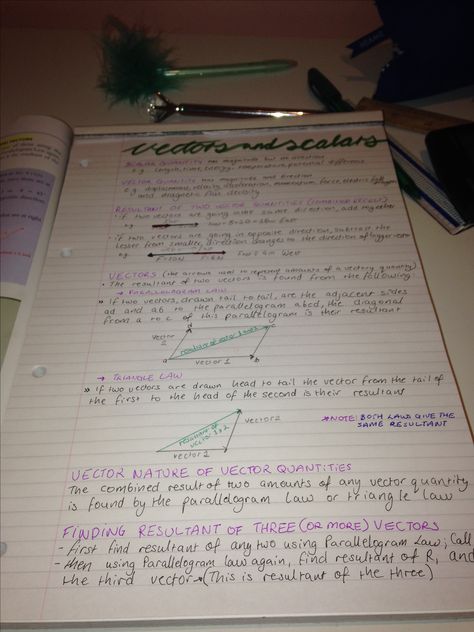 Vectors and scalars
SCALAR QUANTITY has magnitude but no direction
e.g. Length, time, energy, temperature, potential difference
VECTOR QUANTITY has magnitude and direction
e.g. displacement, velocity, acceleration, momentum, force, electric
and magnetic flux density
RESULTANT OF TWO VECTOR QUANTITIES
if two vectors are going in the same direction, add together
eg
if two vectors are going in opposite direction, subtract the
lesser from
eg
VECTORS (the arrows used to represent amounts of a vector quantity)
The resultant of two vectors is found from the following
→ PARALLELOGRAM LAW
» If two vectors, drawn tail to tail, are the adjacent sides
ad and ab to the parallelogram abcd, the diagonal
from a to c of this parallelogram is their resultant
d c
vector
2
resultant of vector 1 and 2
a vector 1 b
→ TRIANGLE LAW
» If two vectors are drawn head to tail the vector from the tail of
the first to the head of the second is their resultant
vector 2
*NOTE: BOTH LAWS GIVE THE
SAME RESULTANT
resultant of
vector 1, 2
vector 1
VECTOR NATURE OF VECTOR QUANTITIES
The combined result of two amounts of any vector quantity
is found by the parallelogram law or triangle law
FINDING RESULTANT OF THREE (OR MORE) VECTORS
- first find resultant of any two using Parallelogram Law; Call
- then using Parallelogram law again, find resultant of R, and
the third vector → (This is resultant of the three)